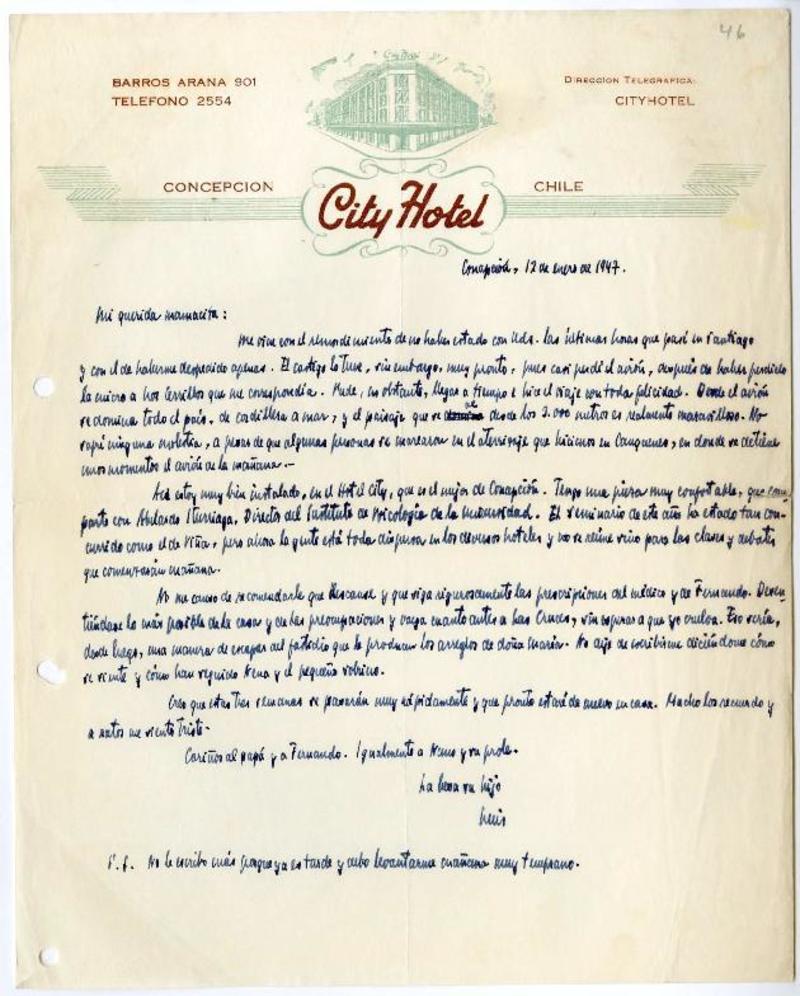 46
BARROS ARANA 901
TELEFONO 2554
DIRECCION TELEGRAFICA:
CITYHOTEL
CONCEPCION
City Hotel
CHILE
Concepción, 12 de enero de 1947.
Mi querida mamacita:
Me vine con el remordimiento de no haber estado con Uds. las últimas horas que pasé en Santiago
y con el de haberme despedido apenas. El castigo lo tuve, sin embargo, muy pronto, pues casi perdí el avión, después de haber perdido
la micro a Los Cerrillos que me correspondía. Pude, no obstante, llegar a tiempo e hice el viaje con toda felicidad. Desde el avión
se domina todo el país, de cordillera a mar, y el paisaje que se ve desde los 3.000 metros es realmente maravilloso. No
sufrí ninguna molestia, a pesar de que algunas personas se marearon en el aterrizaje que hicimos en Cauquenes, en donde se detiene
unos momentos el avión de la mañana.—
Acá estoy muy bien instalado, en el Hotel City, que es el mejor de Concepción. Tengo una pieza muy confortable, que com-
parto con Abelardo Iturriaga, Director del Instituto de Psicología de la Universidad. El seminario de este año ha estado tan con-
currido como el de Viña, pero ahora la gente está toda dispersa en los diversos hoteles y no se reúne sino para las clases y debates
que comenzarán mañana.
No me canso de recomendarle que descanse y que siga rigurosamente las prescripciones del médico y de Fernando. Desen-
tiéndase lo más posible de la casa y de las preocupaciones y vaya cuanto antes a Las Cruces, sin esperar a que yo vuelva. Eso sería,
desde luego, una manera de escapar del fastidio que le producen los arreglos de doña María. No deje de escribirme diciéndome cómo
se siente y cómo han seguido Nena y el pequeño sobrino.
Creo que estas tres semanas se pasarán muy rápidamente y que pronto estaré de nuevo en casa. Mucho los recuerdo y
a ratos me siento triste.
Cariños al papá y a Fernando. Igualmente a Nena y su prole.
La besa su hijo
Luis
P.S. No le escribo más porque ya es tarde y debo levantarme mañana muy temprano.